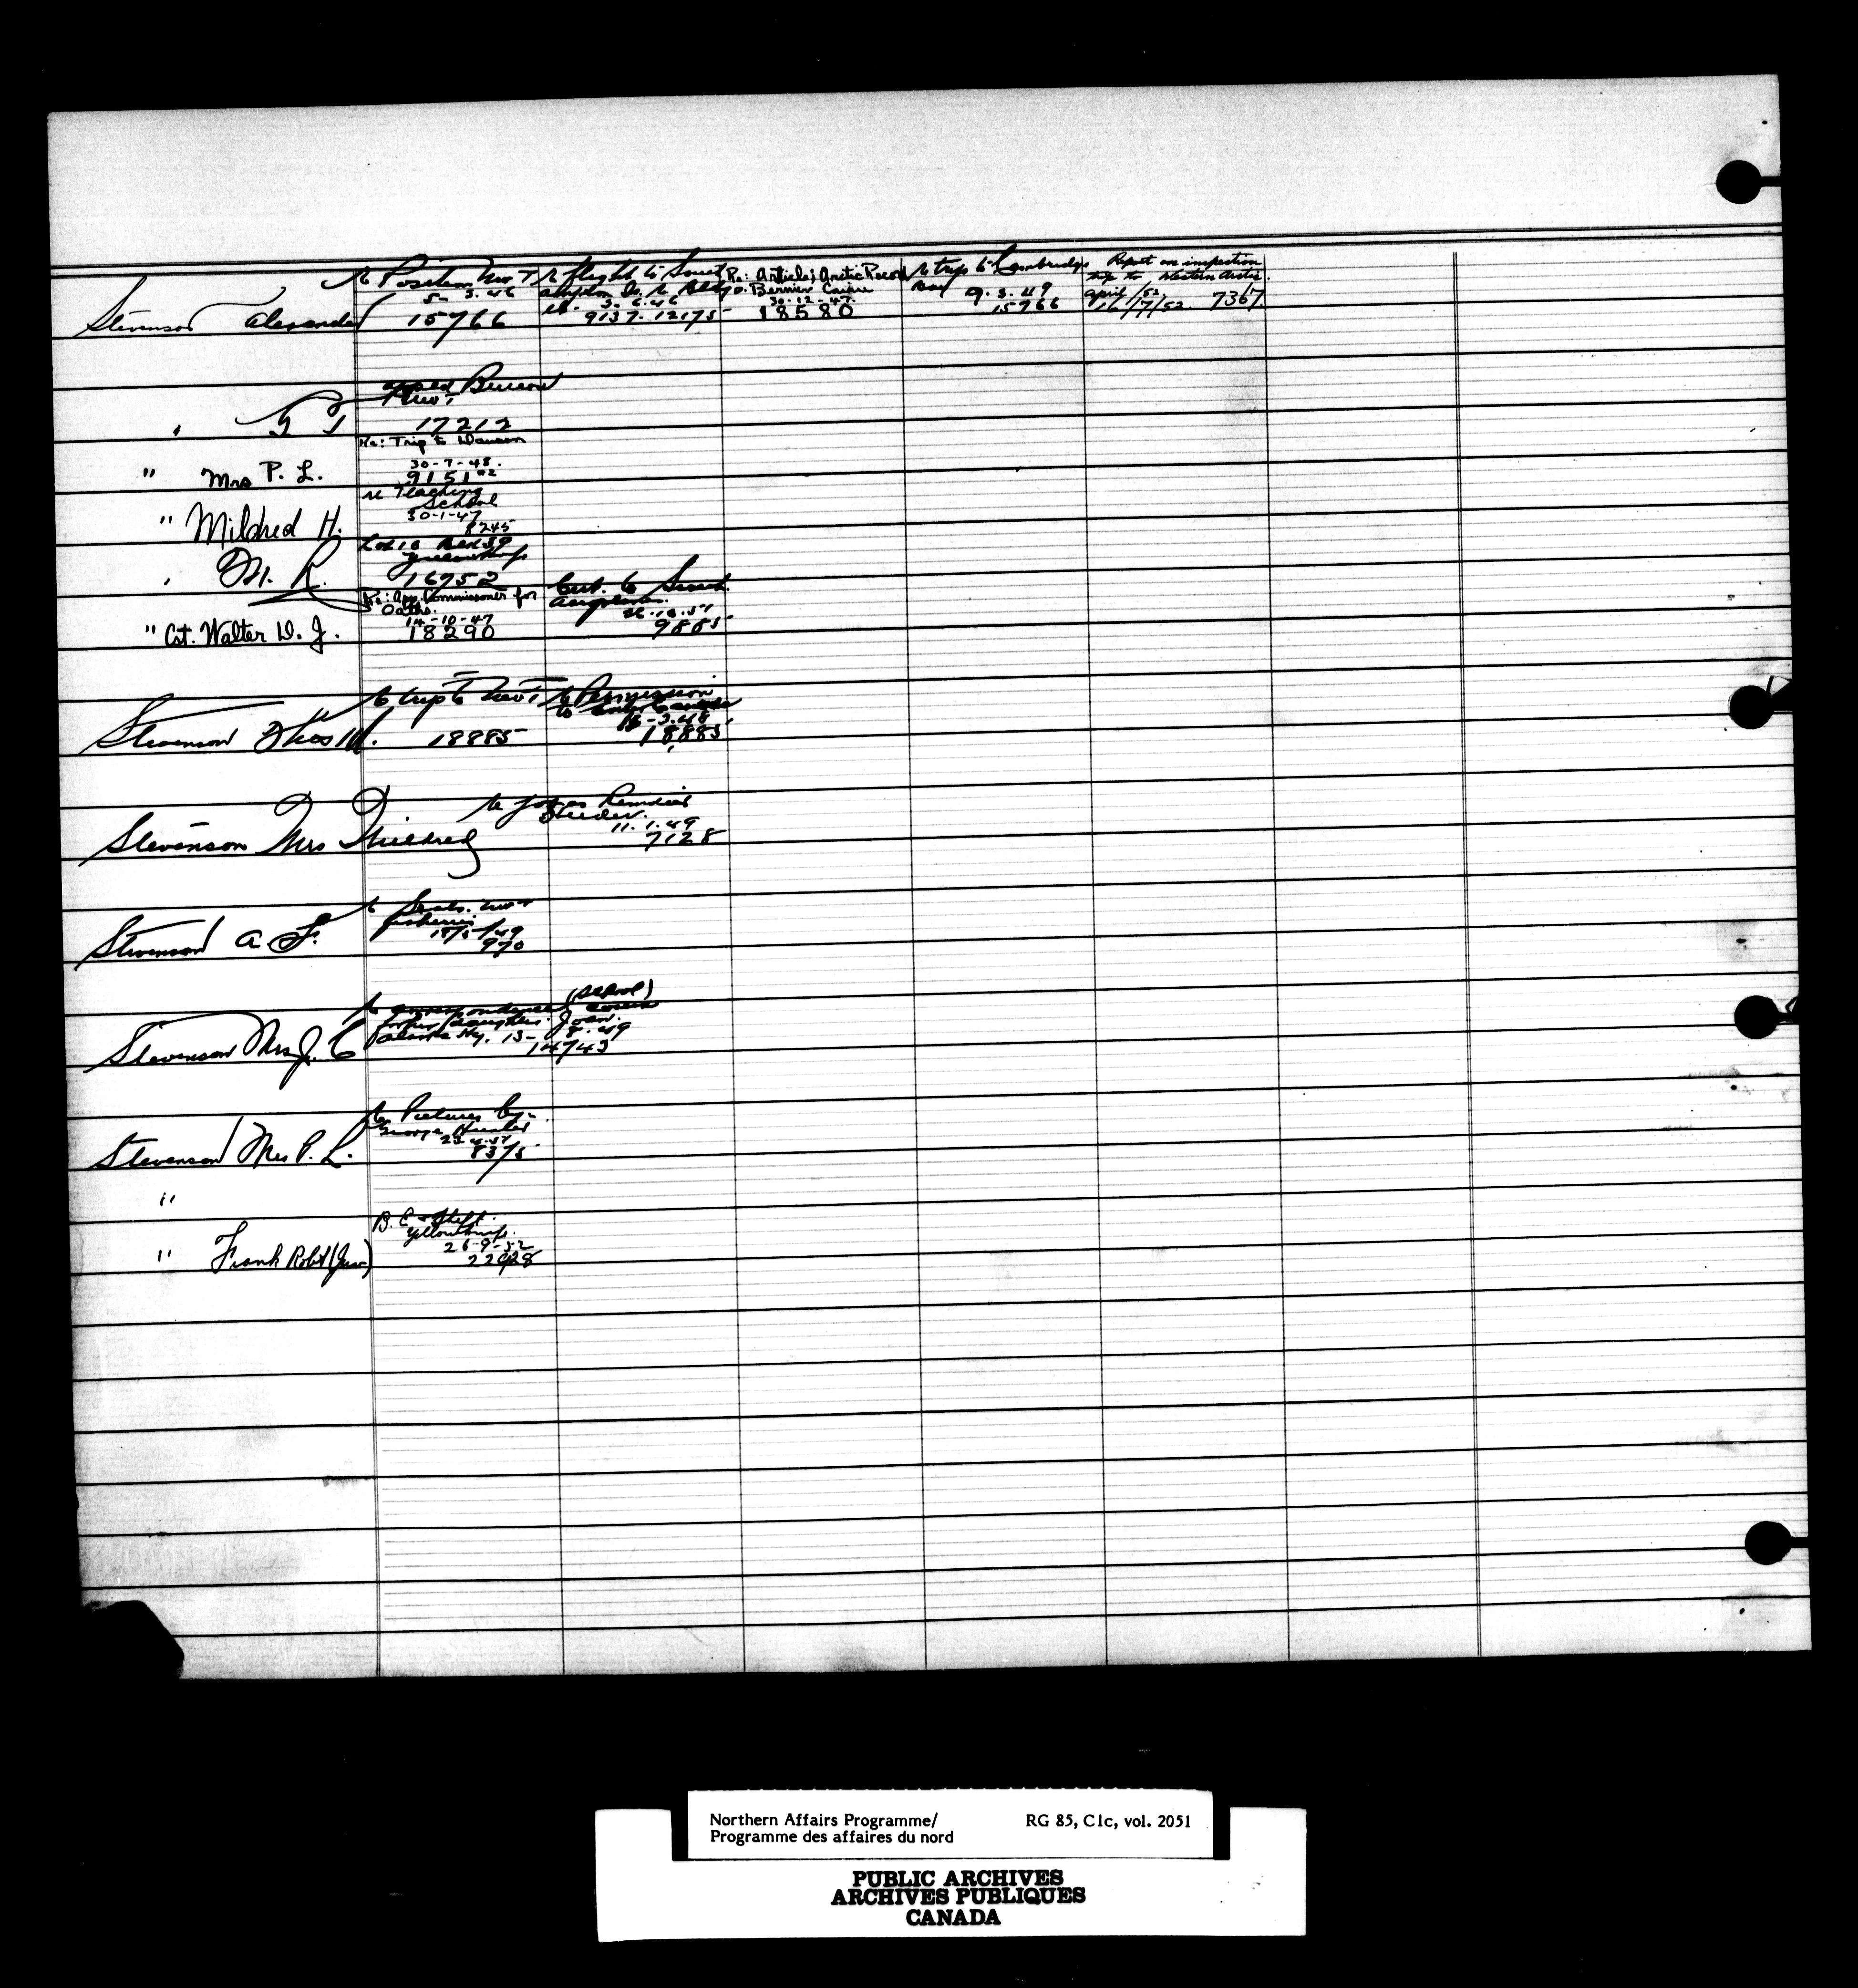 Stevenson Alexander
re Position NWT
5-3.46
15766
re flight to Smith
3-6.46
9137-12175
Re: Article; Arctic Record
o. Bernier Cairn
30-12-47.
18580
re trip to Cambridge
Bay
9.3.49
15766
Report on inspection
trip to Western Arctic.
April /52
16/7/52. 7367.
17212
" Mrs P. L.
Re: Trip to Dawson
30-7-48.
9151 #2
" Mildred H.
re Teaching
School
30-1-47
8245
" M. R.
Lot 10 Blk 59
16952
" Cst. Walter D. J.
Re: App. Commissioner for
Oaths.
14-10-47
18290
9885
Stevenson Thos W.
re trip to NWT
18885
re Permission
16-3.48
18885
Stevenson Mrs Mildred
11.1.49
7128
Stevenson A. F.
fisheries
970
Stevenson Mrs J. C
re correspondence (school) course
for her daughter Joan.
Alaska Hy. 13-8.49
14743
Stevenson Mrs P. L.
re Pictures by
George Hunter
8375
"
" Frank Robt (Junr)
B. E & Theft.
Yellowknife.
26-9-52
22428
Northern Affairs Programme/ RG 85, C1c, vol. 2051
Programme des affaires du nord
PUBLIC ARCHIVES
ARCHIVES PUBLIQUES
CANADA